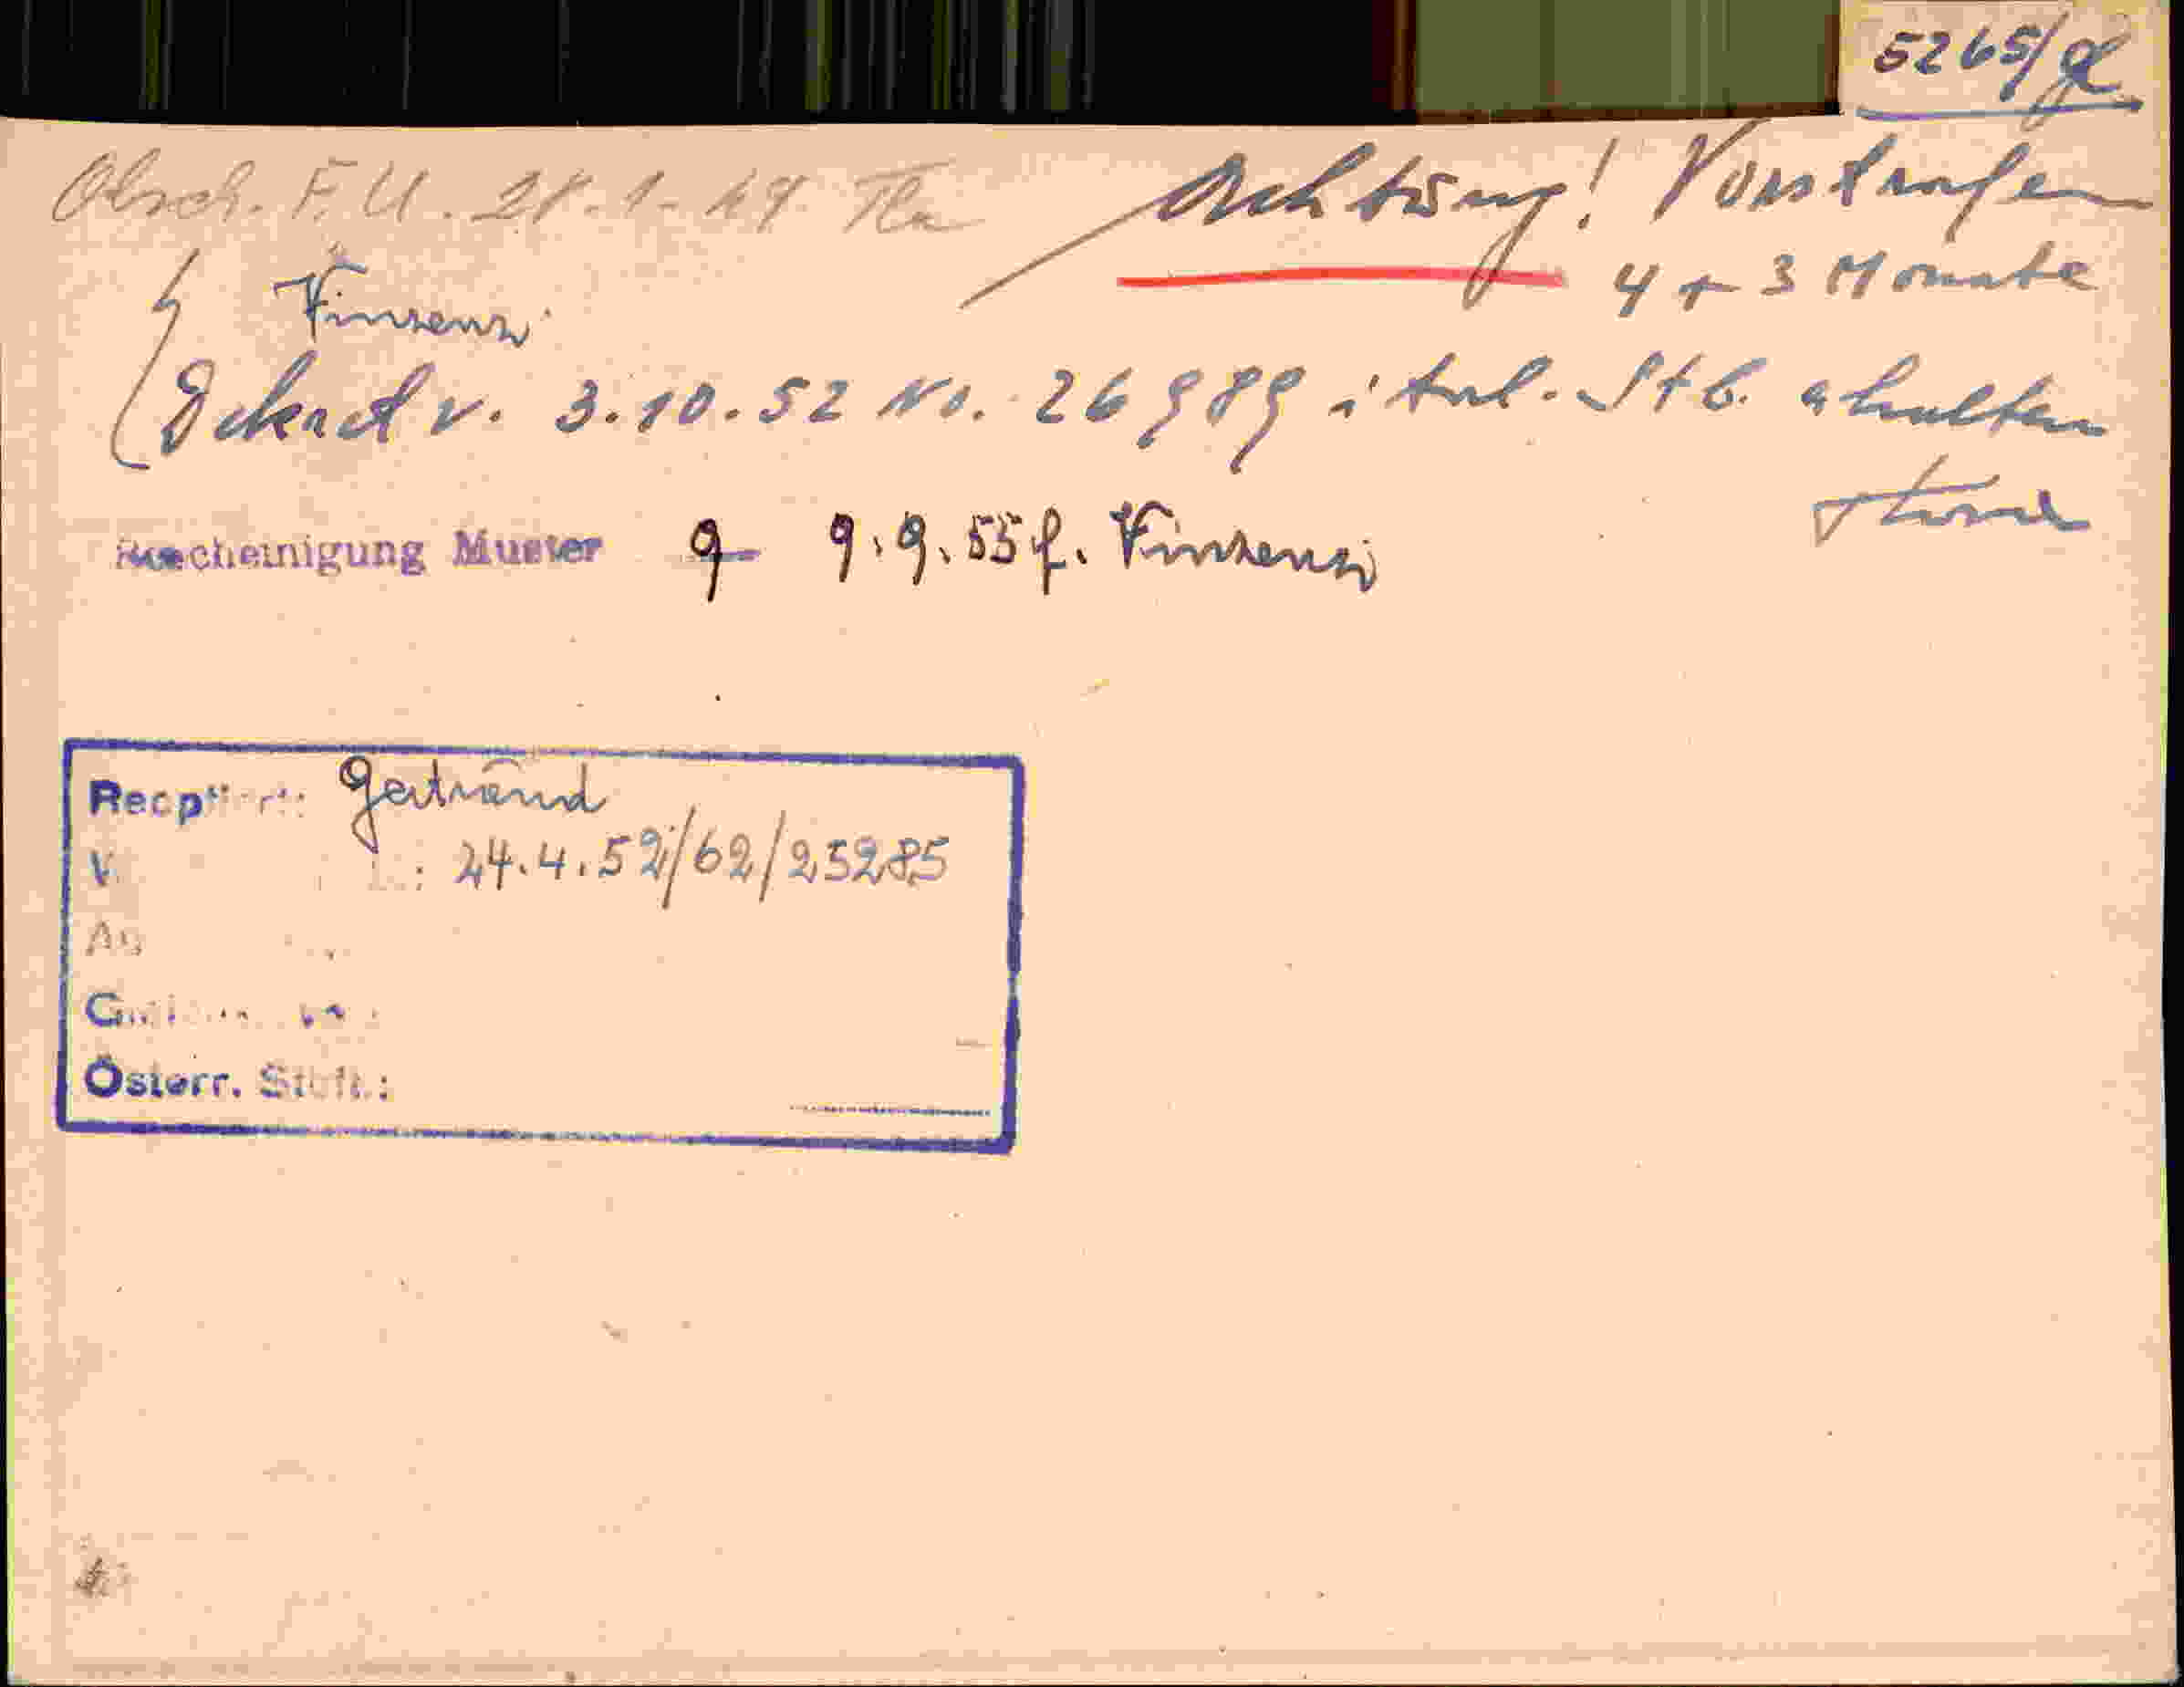 5265/gl
Absch. F. U. 28.1.49 Achtung! Vorstrafen
4 + 3 Monate
Vinzenz
Dekret v. 3.10.52 No. 26989 ital. Stb. erhalten
Bescheinigung Muster 9 9.9.55 f. Vinzenz
Reoptiert: Gertraud
V : 24.4.52/62/25285
Österr. Stbft.: